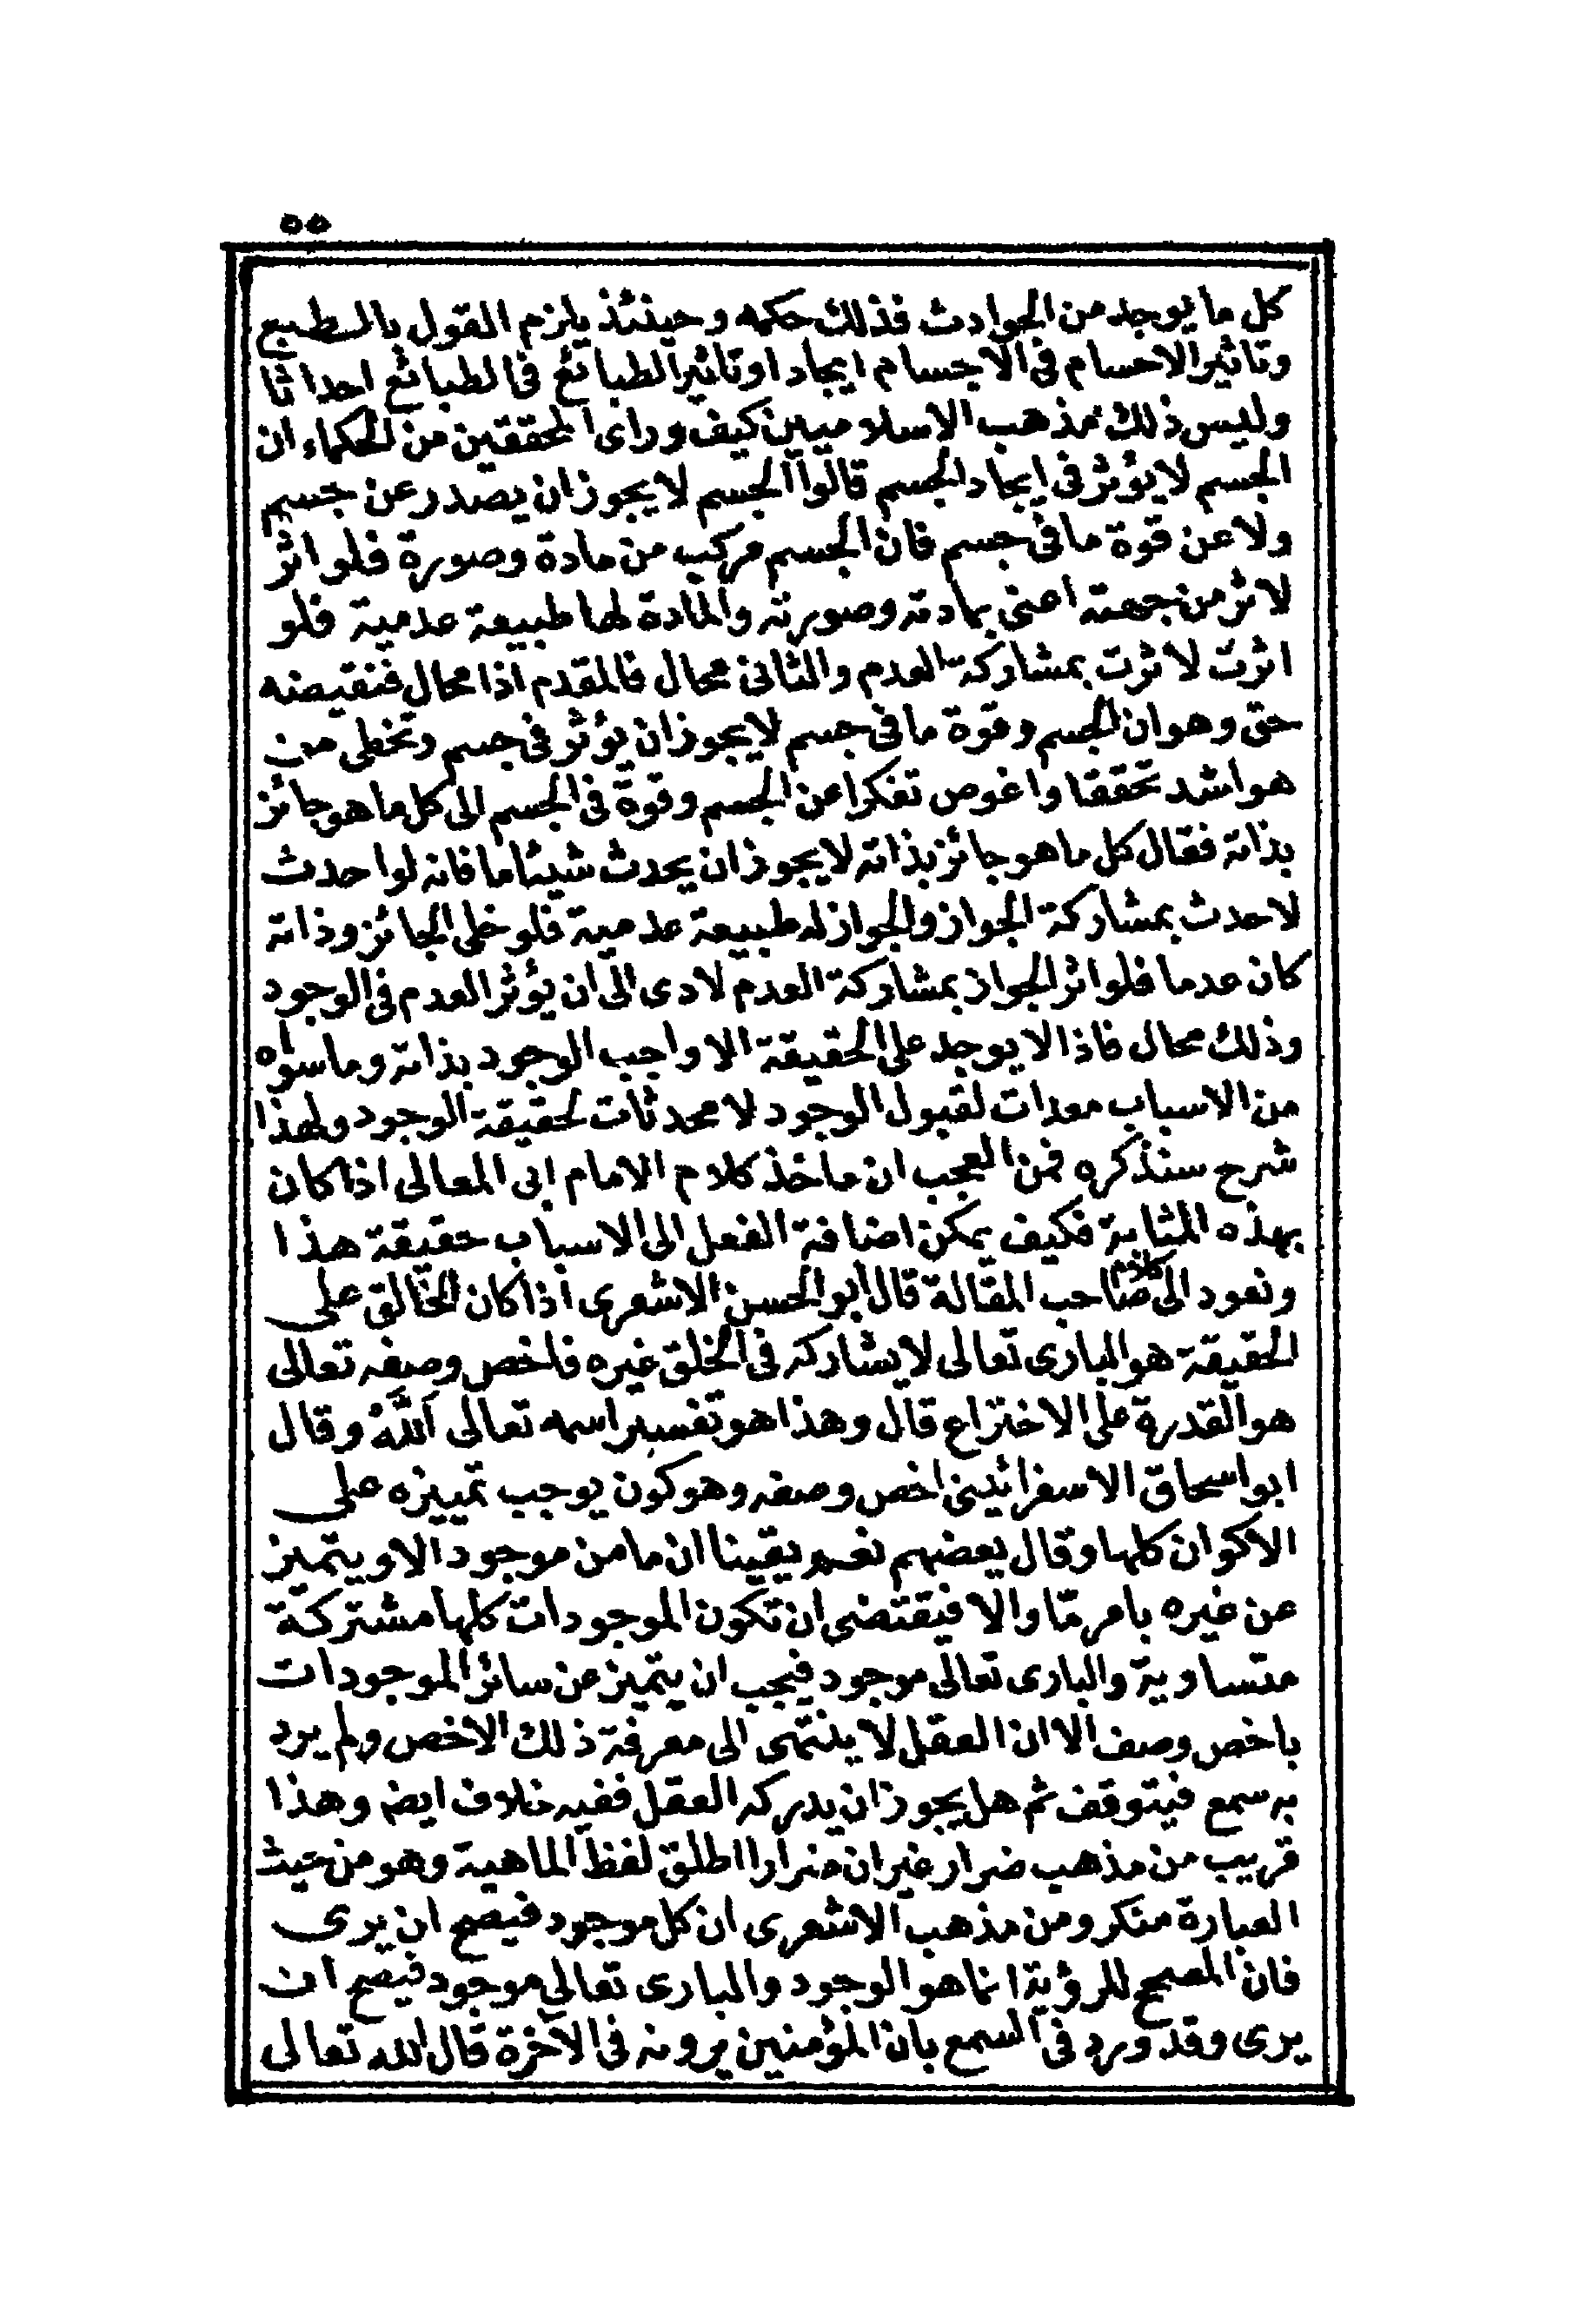 ٥٥
كل ما يوجد من الحوادث فذلك حكمه وحينئذ يلزم القول بالطبع
وتاثير الاجسام فى الاجسام ايجادا وتاثير الطبائع فى الطبائع احداثا
وليس ذلك مذهب الاسلاميين كيف وراى المحققين من الحكماء ان
الجسم لا يؤثر فى ايجاد الجسم قالوا الجسم لا يجوز ان يصدر عن جسم
ولا عن قوة ما فى جسم فان الجسم مركب من مادة وصورة فلو اثر
لاثر من جهته اعنى بمادته وصورته والمادة لها طبيعة عدمية فلو
اثرت لاثرت بمشاركة العدم والثانى محال فالمقدم اذا محال فنقيضه
حق وهو ان الجسم وقوة ما فى جسم لا يجوز ان يؤثر فى جسم وتخطى من
هو اشد تحققا واغوص تفكرا عن الجسم وقوة فى الجسم الى كل ما هو جائز
بذاته فقال كل ما هو جائز بذاته لا يجوز ان يحدث شيئا ما فانه لو احدث
لاحدث بمشاركة الجواز والجواز له طبيعة عدمية فلو خلى الجائز وذاته
كان عدما فلو اثر الجواز بمشاركة العدم لادى الى ان يؤثر العدم فى الوجود
وذلك محال فاذا لا يوجد على الحقيقة الا واجب الوجود بذاته وما سواه
من الاسباب معدات لقبول الوجود لا محدثات لحقيقة الوجود ولهذا
شرح سنذكره فمن العجب ان ماخذ كلام الامام ابى المعالى اذا كان
بهذه المثابة فكيف يمكن اضافة الفعل الى الاسباب حقيقة هذا
ونعود الى كلام صاحب المقالة قال ابو الحسن الاشعرى اذا كان الخالق على
الحقيقة هو البارى تعالى لا يشاركه فى الخلق غيره فاخص وصفه تعالى
هو القدرة على الاختراع قال وهذا هو تفسير اسمه تعالى اَللّٰهُ وقال
ابو اسحاق الاسفرائينى اخص وصفه وهو كون يوجب تمييزه على
الاكوان كلها وقال بعضهم نعلم يقينا ان ما من موجود الا ويتميز
عن غيره بامر مّا والا فيقتضى ان تكون الموجودات كلها مشتركة
متساوية والبارى تعالى موجود فيجب ان يتميز عن سائر الموجودات
باخص وصف الا ان العقل لا ينتهى الى معرفة ذلك الاخص ولم يرد
به سمع فيتوقف ثم هل يجوز ان يدركه العقل ففيه خلاف ايضه وهذا
قريب من مذهب ضرار غير ان ضرارا اطلق لفظ الماهية وهو من حيث
العبارة منكر ومن مذهب الاشعرى ان كل موجود فيصح ان يرى
فان المصحح للرؤية انما هو الوجود والبارى تعالى موجود فيصح ان
يرى وقد ورد فى السمع بان المؤمنين يرونه فى الآخرة قال الله تعالى